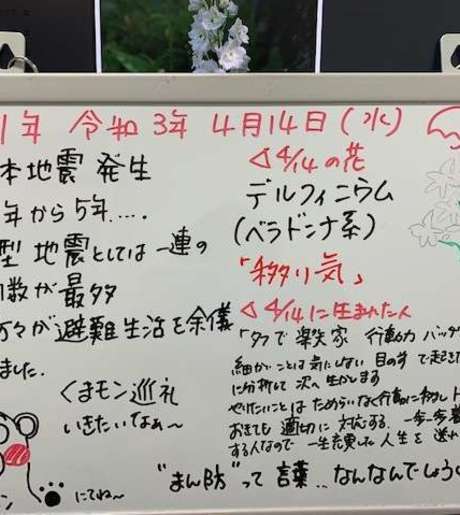 1年 令和3年 4月14日(水)
本地震 発生
年から5年....
型 地震としては 一連の
数が最多
方々が避難生活を余儀
ました.
くまモン巡礼
いきたいなぁ~
にてね~
ン
◁4/14の花
デルフィニウム
(ベラドンナ系)
「移り気」
◁4/14に生まれた人
「タフで楽天家 行動力 バッグ
細かいことは気にしない 目の前で起きた
に分析して 次へ生かします
やりたいことは ためらいなく行動に移し
おきても 適切に 対応する. 一歩一歩
する人なので 一生充実した人生を 送れ
"まん防"って 言葉..なんなんでしょう